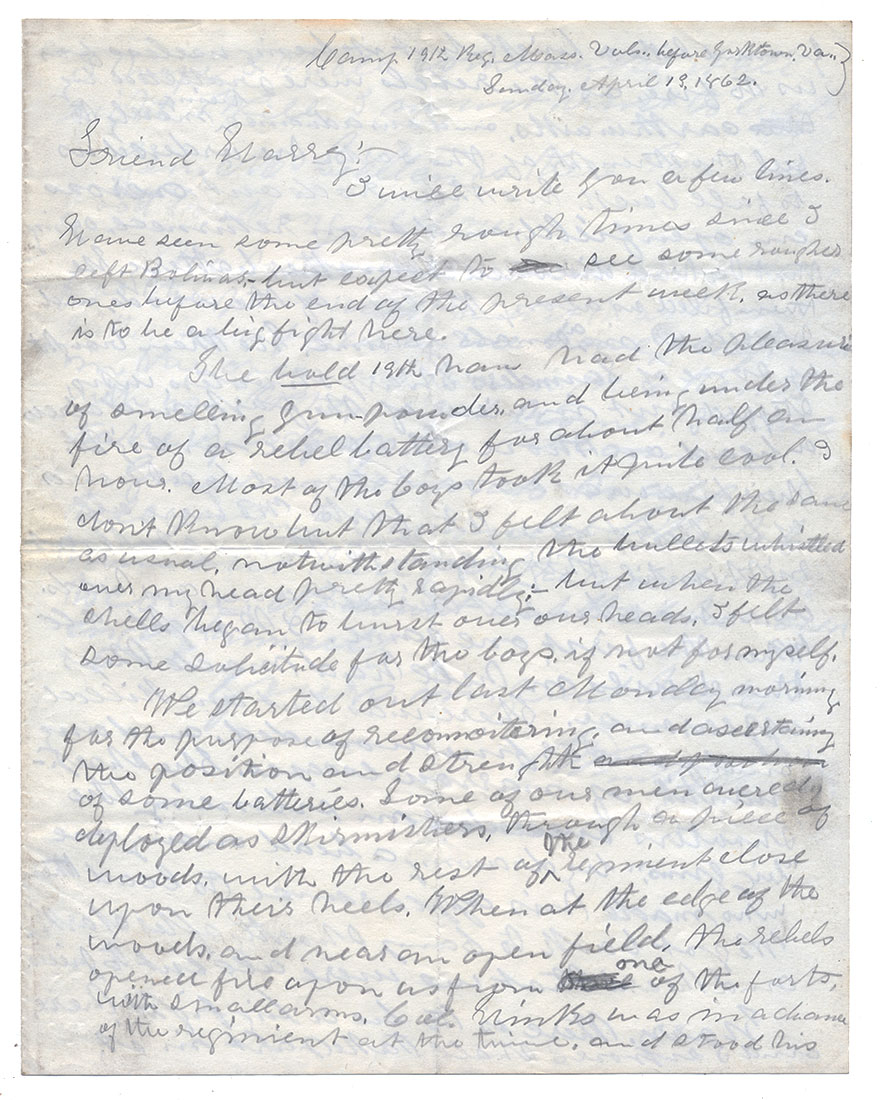 Camp 19th Reg. Mass. Vols., before Yorktown, Va.,
Sunday, April 13, 1862.
Friend Harry:—
I will write you a few lines.
Have seen some pretty rough times since I
left Bolivar, but expect to see some rougher
ones before the end of the present week, as there
is to be a big fight here.
The bold 19th have had the pleasure
of smelling gun-powder, and being under the
fire of a rebel battery for about half an
hour. Most of the boys took it quite cool. I
don't know but that I felt about the same
as usual, notwithstanding the bullets whistled
over my head pretty rapidly;— but when the
shells began to burst over our heads, I felt
some solicitude for the boys, if not for myself.
We started out last Monday morning
for the purpose of reconnoitering, and ascertaining
the position and strenghth and position
of some batteries. Some of our men were
deployed as skirmishers, through a piece of
woods, with the rest of the regiment close
upon their heels. When at the edge of the
woods, and near an open field, the rebels
opened fire upon us from one of the forts,
with small arms. Col. Hinks was in
of the regiment at the time, and stood his